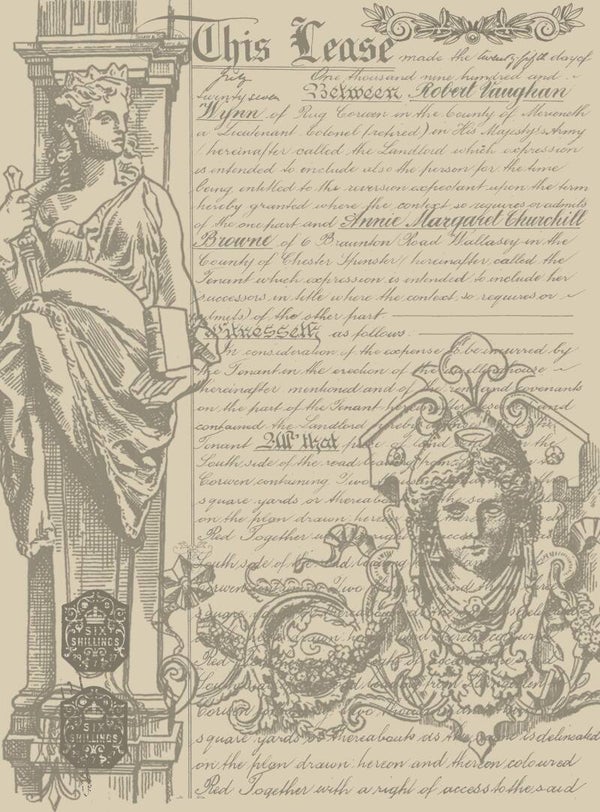 This Lease made the twenty fifth day of
July One thousand nine hundred and
twenty seven Between Robert Vaughan
Wynn of Rug Corwen in the County of Merioneth
a Lieutenant Colonel (retired) in His Majesty's Army
(hereinafter called the Landlord which expression
is intended to include also the person for the time
being entitled to the reversion expectant upon the term
hereby granted where the context so requires or admits
of the one part and Annie Margaret Churchill
Browne of 6 Braunton Road Wallasey in the
County of Chester Spinster (hereinafter called the
Tenant which expression is intended to include her
successors in title where the context so requires or
admits) of the other part
Witnesseth as follows:
In consideration of the expense to be incurred by
the Tenant in the erection of the dwellinghouse
hereinafter mentioned and of the rent and covenants
on the part of the Tenant hereinafter reserved and
contained the Landlord
Tenant All that piece of land the
South side of the road leading from
Corwen containing Two
square yards or thereabouts
on the plan drawn hereon
Red Together with a right of access
South side of the road leading
Corwen Two
square
drawn
Red
South side road leading from
Corwen Two
square yards or thereabouts as the same is delineated
on the plan drawn hereon and thereon coloured
Red Together with a right of access to the said
SIX
SHILLINGS
SIX
SHILLINGS